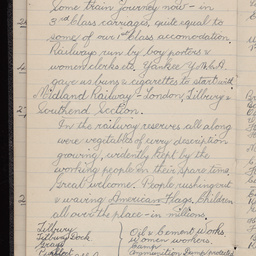 Some train journey now - in
3rd class carriages, quite equal to
some of our 1st class accomodation.
Railways run by boy porters &
women clerks etc. Yankee Y.M.C.A.
gave us buns & cigarettes to start with
Midland Railway - London, Tilbury &
Southend Section.
In the railway reserves all along
were vegetables of every description
growing, evidently kept by the
working people in their spare time.
Great welcome. People rushing out
& waving American flags. Children
all over the place - in millions.
Tilbury
Tilbury Dock
Grays
Oil & Cement Works.
women workers.
Camps
ammunition dumps